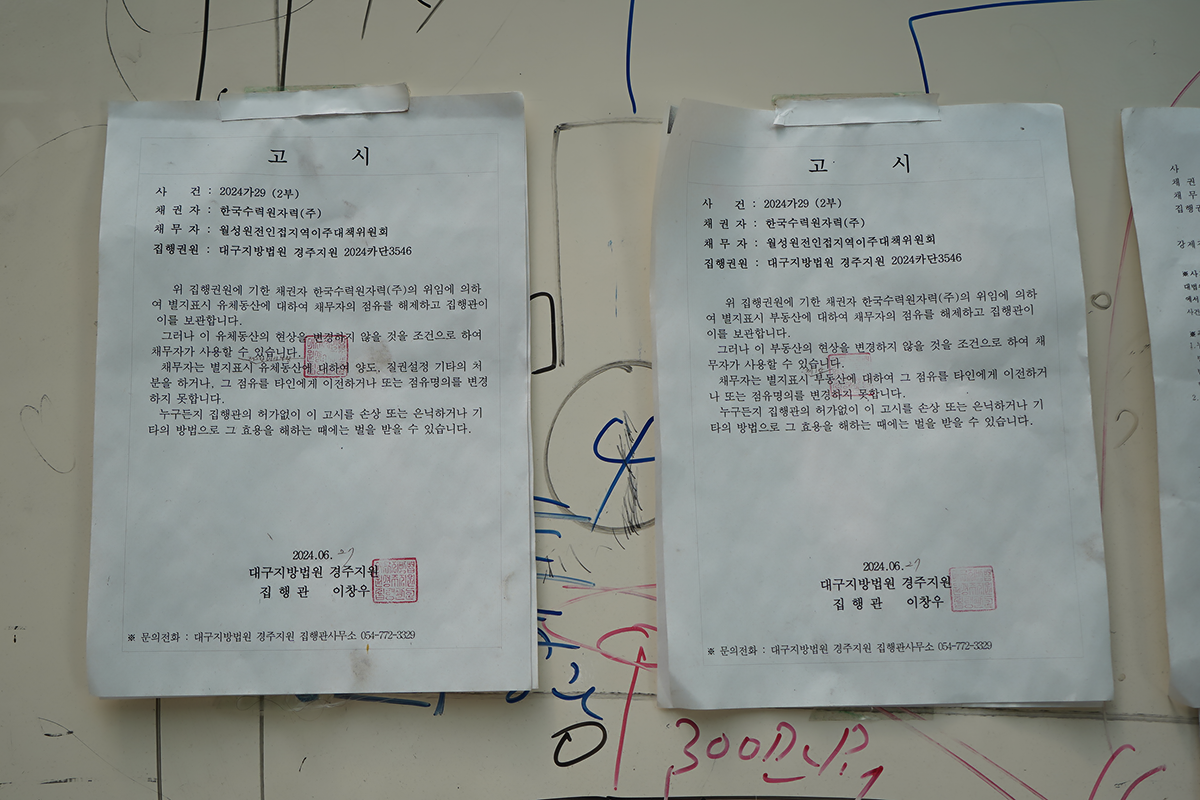 고 시
사 건 : 2024가29 (2부)
채 권 자 : 한국수력원자력(주)
채 무 자 : 월성원전인접지역이주대책위원회
집행권원 : 대구지방법원 경주지원 2024카단3546
위 집행권원에 기한 채권자 한국수력원자력(주)의 위임에 의하
여 별지표시 유체동산에 대하여 채무자의 점유를 해제하고 집행관이
이를 보관합니다.
그러나 이 유체동산의 현상을 변경하지 않을 것을 조건으로 하여
채무자가 사용할 수 있습니다.
채무자는 별지표시 유체동산에 대하여 양도, 질권설정 기타의 처
분을 하거나, 그 점유를 타인에게 이전하거나 또는 점유명의를 변경
하지 못합니다.
누구든지 집행관의 허가없이 이 고시를 손상 또는 은닉하거나 기
타의 방법으로 그 효용을 해하는 때에는 벌을 받을 수 있습니다.
2024.06. 27
대구지방법원 경주지원
집 행 관 이창우
※ 문의전화 : 대구지방법원 경주지원 집행관사무소 054-772-3329
고 시
사 건 : 2024가29 (2부)
채 권 자 : 한국수력원자력(주)
채 무 자 : 월성원전인접지역이주대책위원회
집행권원 : 대구지방법원 경주지원 2024카단3546
위 집행권원에 기한 채권자 한국수력원자력(주)의 위임에 의하
여 별지표시 부동산에 대하여 채무자의 점유를 해제하고 집행관이
이를 보관합니다.
그러나 이 부동산의 현상을 변경하지 않을 것을 조건으로 하여 채
무자가 사용할 수 있습니다.
채무자는 별지표시 부동산에 대하여 그 점유를 타인에게 이전하거
나 또는 점유명의를 변경하지 못합니다.
누구든지 집행관의 허가없이 이 고시를 손상 또는 은닉하거나 기
타의 방법으로 그 효용을 해하는 때에는 벌을 받을 수 있습니다.
2024.06. 27
대구지방법원 경주지원
집 행 관 이창우
※ 문의전화 : 대구지방법원 경주지원 집행관사무소 054-772-3329
사
채 권
채 무
집행권
강제
※사
대법
에서
사건
300